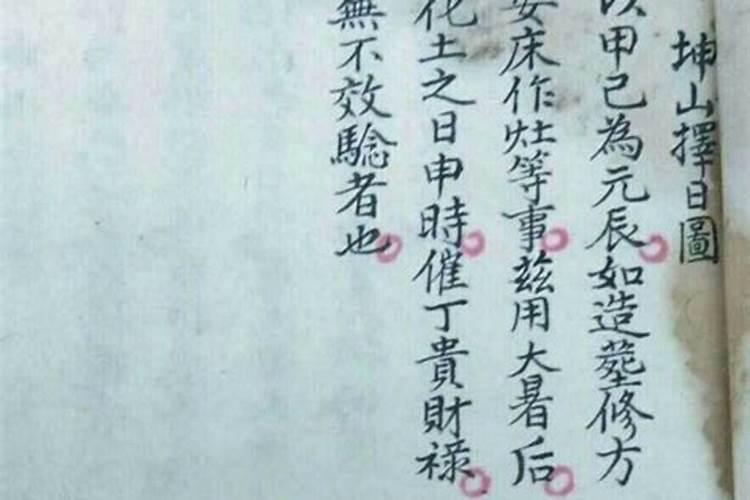 坤山擇日圖
以甲己為元辰如造葬修方
安床作灶等事兹用大暑后
化土之日申時催丁貴財禄
無不效驗者也